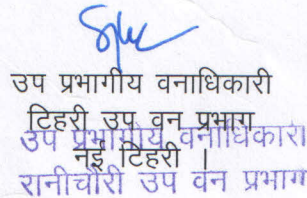 उप प्रभागीय वनाधिकारी
टिहरी उप वन प्रभाग
उप प्रभागीय वनाधिकारी
नई टिहरी ।
रानीचौरी उप वन प्रभाग